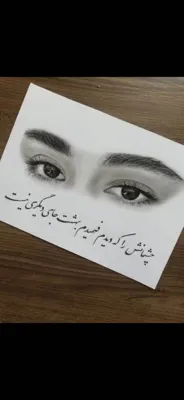 چشمانش را که دیدم فهمیدم بهشت جای دیگری نیست